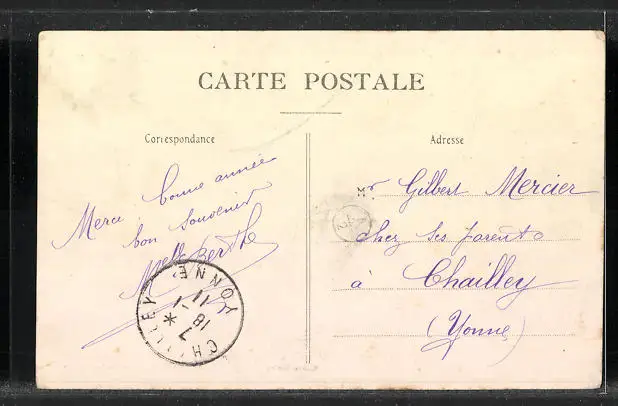 CARTE POSTALE
Correspondance
Merci bonne année
bon souvenir
Melle Berthe
Adresse
Mr Gilbert Mercier
chez ses parents
à Chailley
(Yonne)
CHAILLEY YONNE
7
18
1-1
11